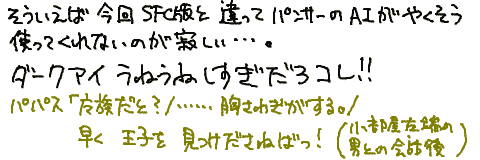 そういえば 今回 SFC版と 違って パンサーの AIが やくそう
使って くれないのが 寂しい・・・。
ダークアイ うねうねしすぎだろコレ!!
パパス「亡族だと?!・・・・・・胸さわぎがする。!
早く 王子を 見つけださねばっ! (小部屋左端の
男との会話後)